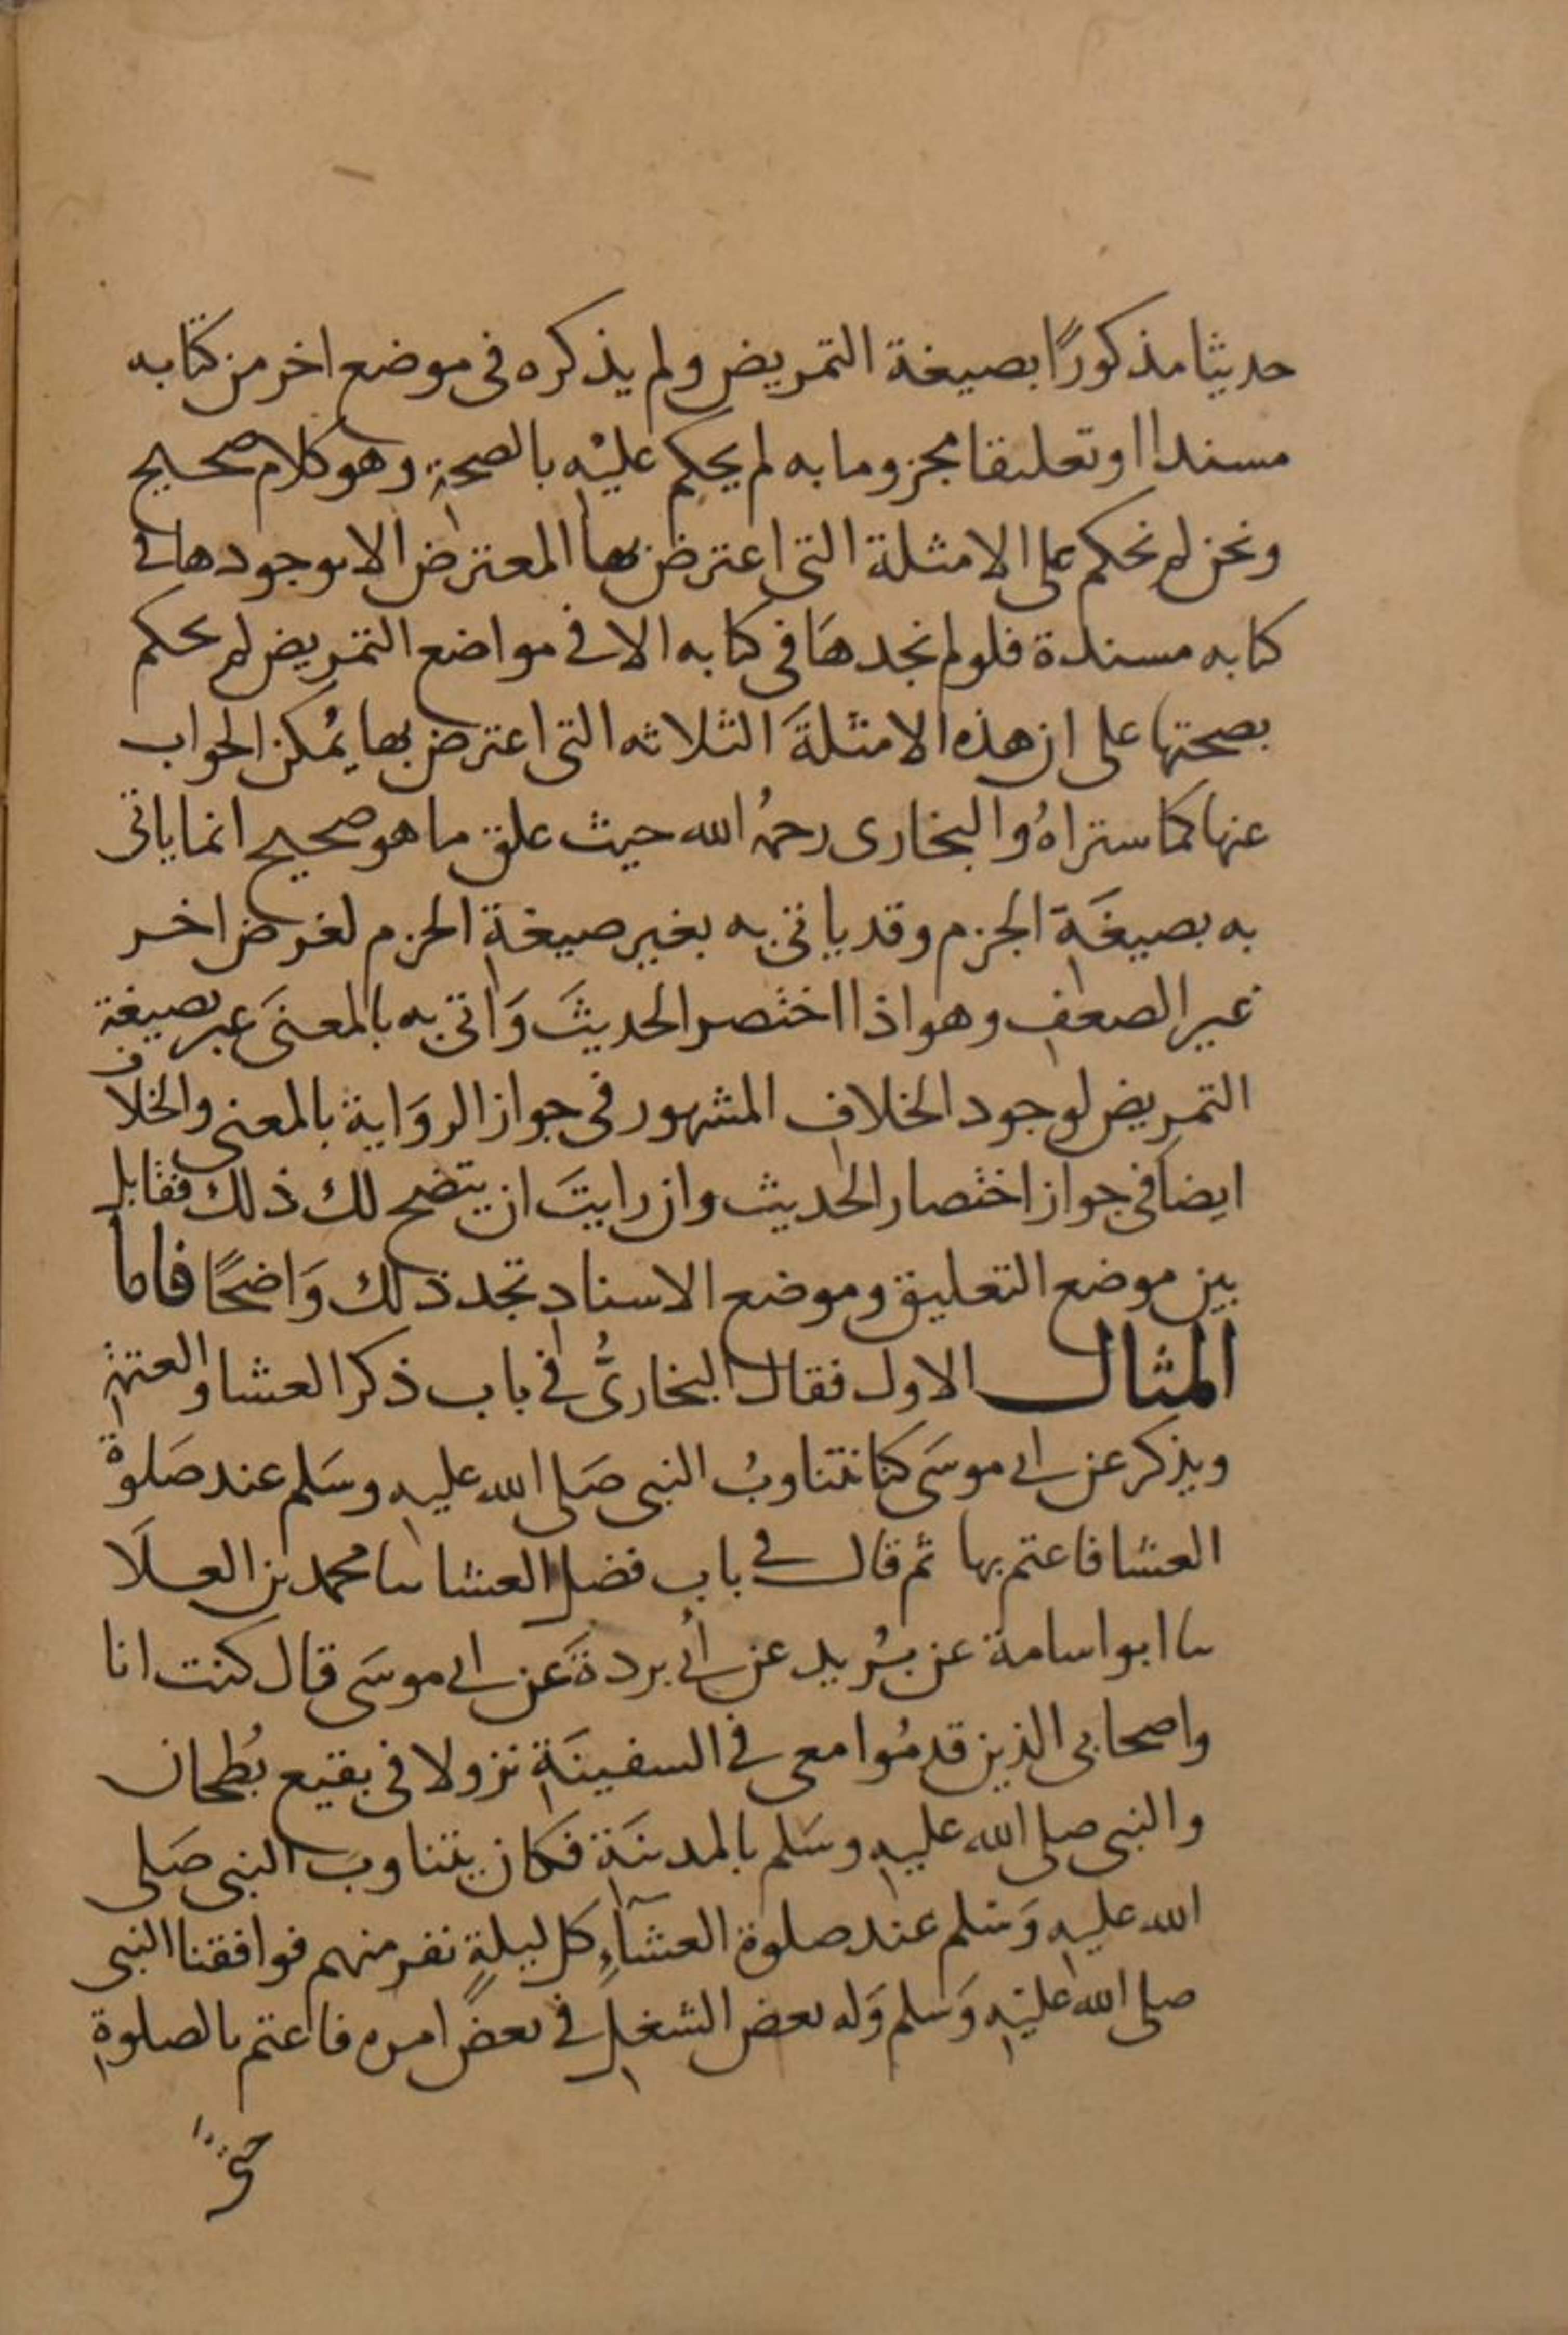 حديثا مذكورًا بصيغة التمريض ولم يذكره فى موضع اخر من كتابه
مسندا او تعليقا مجزوما به لم يحكم عليْه بالصحةِ وهو كلام صحيح
ونحن لم نحكم على الامثلة التى اعترض بها المعترض الا بوجودها فى
كتابه مسندة فلو لم نجدهَا فى كتابه الا فى مواضع التمريض لم نحكم
بصحتها على ان هذه الامثلةَ الثلاثه التى اعترض بها يُمكن الجواب
عنها كما ستراهُ والبخارى رحمهُ الله حيث علق ما هو صحيح انما ياتى
به بصيغَة الجزم وقد ياتى به بغير صيغةِ الجزم لغرض اخر
غير الضعفِ وهو اذا اختصر الحديثَ وَاتى به بالمعنىَ عبر بصيغة
التمريض لوجود الخلافِ المشهور فى جواز الروَاية بالمعنى والخلاف
ايضا فى جواز اختصار الحديث وان رايتَ ان يتضح لك ذلك فقابل
بين موضع التعليق وموضع الاسنادِ تجد ذلك وَاضحًا فاما
المثال الاول فقال البخارىُّ فى باب ذكر العشا والعتمةِ
ويذكر عن ابى موسَى كنا نتناوبُ النبى صَلى الله عليهِ وسَلم عند صَلوة
العشا فاعتم بها ثم قال فى باب فضل العشا ثنا محمد بن العلَا
ثنا ابو اسامة عن بُريد عن أبى بردةَ عن ابى موسَى قال كنت انا
واصحابى الذين قدمُوا معى فى السفينَةِ نزولا فى بقيع بُطحان
والنبى صلى الله عليهِ وسَلم بالمدينَةِ فكان يتناوبُ النبى صَلى
الله عليهِ وَسَلم عند صلوة العشَآءِ كل ليلةٍ نفر منهم فوافقنا النبى
صلى الله عليْهِ وَسَلم وَله بعض الشغلِ فى بعض امره فاعتم بالصلوةِ
حتى